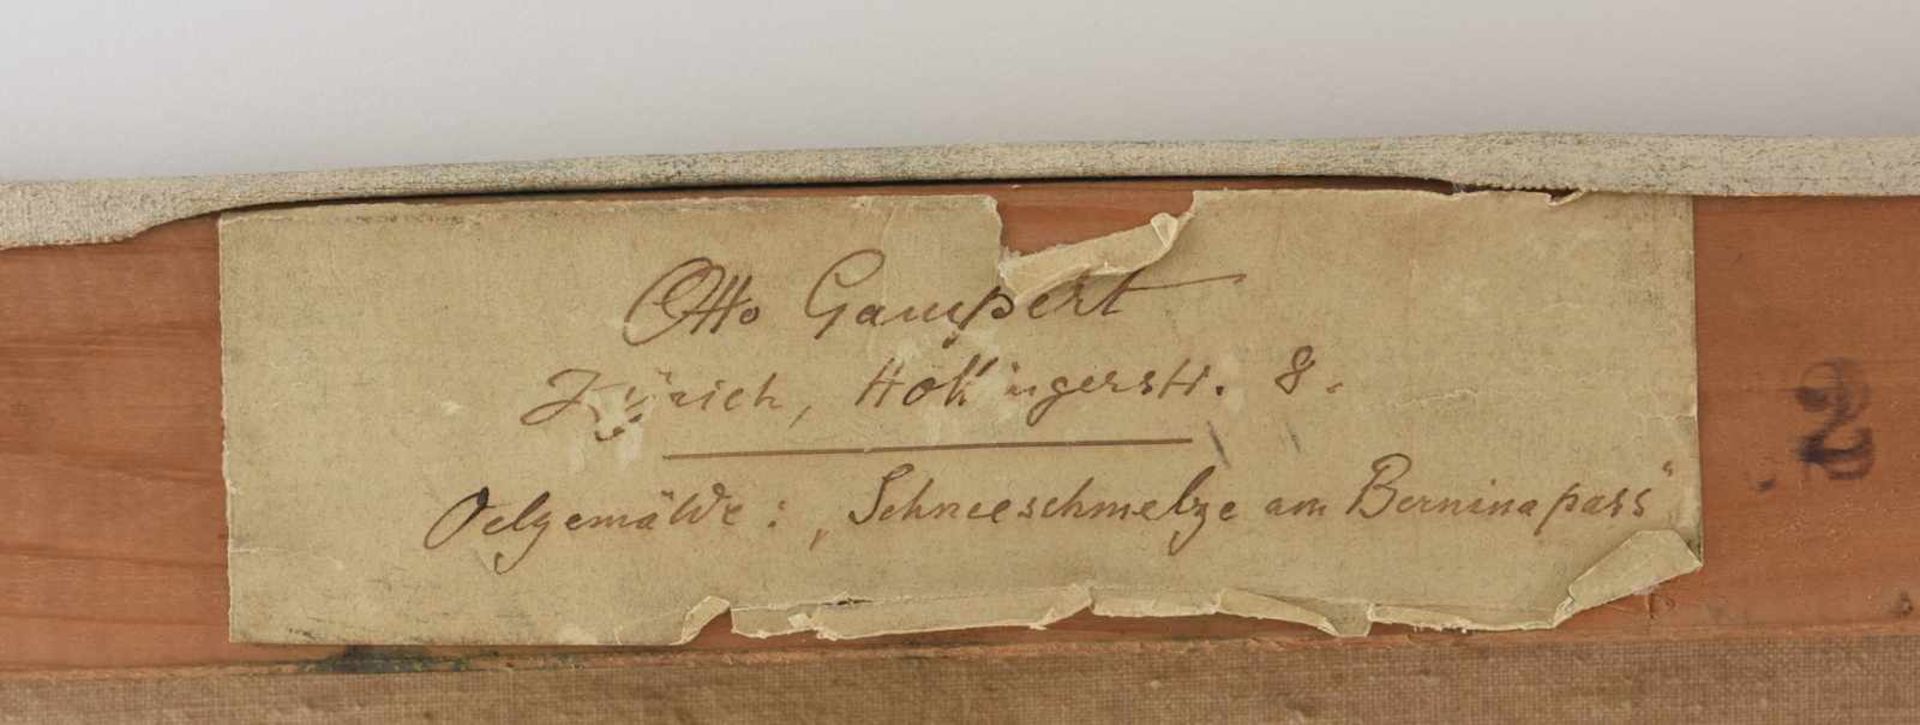 Otto Gampert
Zürich, Hottingerstr. 8.
Oelgemälde: „Schneeschmelze am Berninapass“
2